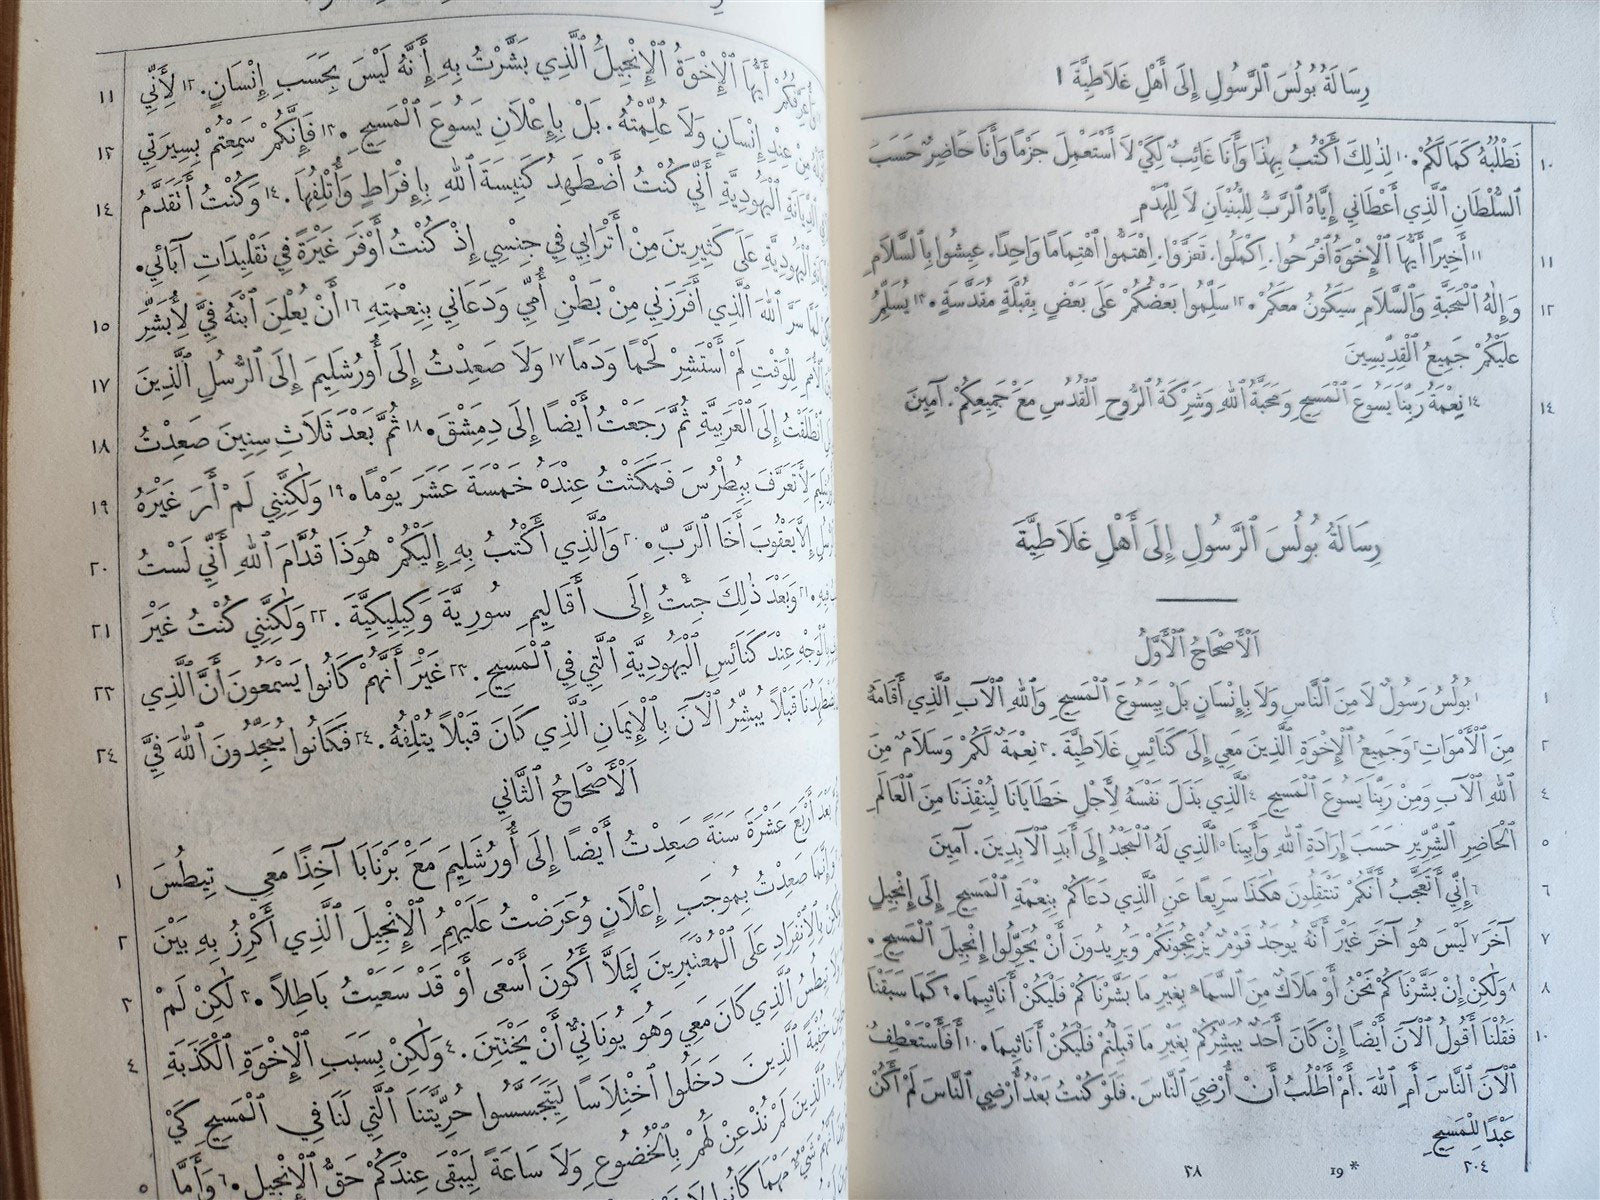 رِسَالَةُ بُولُسَ ٱلرَّسُولِ إِلَى أَهْلِ غَلَاطِيَّةَ ١
١٠ نَطْلُبُهُ كَمَالَكُمْ. ١٠ لِذٰلِكَ أَكْتُبُ بِهٰذَا وَأَنَا غَائِبٌ لِكَيْ لَا أَسْتَعْمِلَ جَزْمًا وَأَنَا حَاضِرٌ حَسَبَ
ٱلسُّلْطَانِ ٱلَّذِي أَعْطَانِي إِيَّاهُ ٱلرَّبُّ لِلْبُنْيَانِ لَا لِلْهَدْمِ
١١ ١١ أَخِيرًا أَيُّهَا ٱلْإِخْوَةُ ٱفْرَحُوا. اِكْمَلُوا. تَعَزَّوْا. اِهْتَمُّوا ٱهْتِمَامًا وَاحِدًا. عِيشُوا بِٱلسَّلَامِ
١٢ وَإِلٰهُ ٱلْمَحَبَّةِ وَٱلسَّلَامِ سَيَكُونُ مَعَكُمْ. ١٢ سَلِّمُوا بَعْضُكُمْ عَلَى بَعْضٍ بِقُبْلَةٍ مُقَدَّسَةٍ. ١٣ يُسَلِّمُ
عَلَيْكُمْ جَمِيعُ ٱلْقِدِّيسِينَ
١٤ ١٤ نِعْمَةُ رَبِّنَا يَسُوعَ ٱلْمَسِيحِ وَمَحَبَّةُ ٱللهِ وَشَرِكَةُ ٱلرُّوحِ ٱلْقُدُسِ مَعَ جَمِيعِكُمْ. آمِينَ
رِسَالَةُ بُولُسَ ٱلرَّسُولِ إِلَى أَهْلِ غَلَاطِيَّةَ
اَلْأَصْحَاحُ ٱلْأَوَّلُ
١ ١ بُولُسُ رَسُولٌ لَا مِنَ ٱلنَّاسِ وَلَا بِإِنْسَانٍ بَلْ بِيَسُوعَ ٱلْمَسِيحِ وَٱللهِ ٱلْآبِ ٱلَّذِي أَقَامَهُ
٢ مِنَ ٱلْأَمْوَاتِ ٢ وَجَمِيعُ ٱلْإِخْوَةِ ٱلَّذِينَ مَعِي إِلَى كَنَائِسِ غَلَاطِيَّةَ. ٣ نِعْمَةٌ لَكُمْ وَسَلَامٌ مِنَ
٤ ٱللهِ ٱلْآبِ وَمِنْ رَبِّنَا يَسُوعَ ٱلْمَسِيحِ ٤ ٱلَّذِي بَذَلَ نَفْسَهُ لِأَجْلِ خَطَايَانَا لِيُنْقِذَنَا مِنَ ٱلْعَالَمِ
٥ ٱلْحَاضِرِ ٱلشِّرِّيرِ حَسَبَ إِرَادَةِ ٱللهِ وَأَبِينَا ٥ ٱلَّذِي لَهُ ٱلْمَجْدُ إِلَى أَبَدِ ٱلْآبِدِينَ. آمِينَ
٦ ٦ إِنِّي أَتَعَجَّبُ أَنَّكُمْ تَنْتَقِلُونَ هٰكَذَا سَرِيعًا عَنِ ٱلَّذِي دَعَاكُمْ بِنِعْمَةِ ٱلْمَسِيحِ إِلَى إِنْجِيلٍ
٧ آخَرَ ٧ لَيْسَ هُوَ آخَرَ غَيْرَ أَنَّهُ يُوجَدُ قَوْمٌ يُزْعِجُونَكُمْ وَيُرِيدُونَ أَنْ يُحَوِّلُوا إِنْجِيلَ ٱلْمَسِيحِ.
٨ ٨ وَلٰكِنْ إِنْ بَشَّرْنَاكُمْ نَحْنُ أَوْ مَلَاكٌ مِنَ ٱلسَّمَاءِ بِغَيْرِ مَا بَشَّرْنَاكُمْ فَلْيَكُنْ أَنَاثِيمَا. ٩ كَمَا سَبَقْنَا
١٠ فَقُلْنَا أَقُولُ ٱلْآنَ أَيْضًا إِنْ كَانَ أَحَدٌ يُبَشِّرُكُمْ بِغَيْرِ مَا قَبِلْتُمْ فَلْيَكُنْ أَنَاثِيمَا. ١٠ أَفَأَسْتَعْطِفُ
ٱلْآنَ ٱلنَّاسَ أَمِ ٱللهَ. أَمْ أَطْلُبُ أَنْ أُرْضِيَ ٱلنَّاسَ. فَلَوْ كُنْتُ بَعْدُ أُرْضِي ٱلنَّاسَ لَمْ أَكُنْ
عَبْدًا لِلْمَسِيحِ
٢٠٤ 19 * ٢٨
١١ أَيُّهَا ٱلْإِخْوَةُ ٱلْإِنْجِيلَ ٱلَّذِي بَشَّرْتُ بِهِ أَنَّهُ لَيْسَ بِحَسَبِ إِنْسَانٍ. ١٢ لِأَنِّي
١٢ مِنْ عِنْدِ إِنْسَانٍ وَلَا عُلِّمْتُهُ. بَلْ بِإِعْلَانِ يَسُوعَ ٱلْمَسِيحِ. ١٣ فَإِنَّكُمْ سَمِعْتُمْ بِسِيرَتِي
١٤ ٱلدِّيَانَةِ ٱلْيَهُودِيَّةِ أَنِّي كُنْتُ أَضْطَهِدُ كَنِيسَةَ ٱللهِ بِإِفْرَاطٍ وَأُتْلِفُهَا. ١٤ وَكُنْتُ أَتَقَدَّمُ
ٱلْيَهُودِيَّةِ عَلَى كَثِيرِينَ مِنْ أَتْرَابِي فِي جِنْسِي إِذْ كُنْتُ أَوْفَرَ غَيْرَةً فِي تَقْلِيدَاتِ آبَائِي.
١٥ لَمَّا سَرَّ ٱللهَ ٱلَّذِي أَفْرَزَنِي مِنْ بَطْنِ أُمِّي وَدَعَانِي بِنِعْمَتِهِ ١٦ أَنْ يُعْلِنَ ٱبْنَهُ فِيَّ لِأُبَشِّرَ
١٧ ٱلْأُمَمِ لِلْوَقْتِ لَمْ أَسْتَشِرْ لَحْمًا وَدَمًا ١٧ وَلَا صَعِدْتُ إِلَى أُورُشَلِيمَ إِلَى ٱلرُّسُلِ ٱلَّذِينَ
١٨ ٱنْطَلَقْتُ إِلَى ٱلْعَرَبِيَّةِ ثُمَّ رَجَعْتُ أَيْضًا إِلَى دِمِشْقَ. ١٨ ثُمَّ بَعْدَ ثَلَاثِ سِنِينَ صَعِدْتُ
١٩ لِأَتَعَرَّفَ بِبُطْرُسَ فَمَكَثْتُ عِنْدَهُ خَمْسَةَ عَشَرَ يَوْمًا. ١٩ وَلٰكِنَّنِي لَمْ أَرَ غَيْرَهُ
٢٠ إِلَّا يَعْقُوبَ أَخَا ٱلرَّبِّ. ٢٠ وَٱلَّذِي أَكْتُبُ بِهِ إِلَيْكُمْ هُوَذَا قُدَّامَ ٱللهِ أَنِّي لَسْتُ
٢١ فِيهِ. ٢١ وَبَعْدَ ذٰلِكَ جِئْتُ إِلَى أَقَالِيمِ سُورِيَّةَ وَكِيلِيكِيَّةَ. ٢٢ وَلٰكِنَّنِي كُنْتُ غَيْرَ
بِٱلْوَجْهِ عِنْدَ كَنَائِسِ ٱلْيَهُودِيَّةِ ٱلَّتِي فِي ٱلْمَسِيحِ. ٢٣ غَيْرَ أَنَّهُمْ كَانُوا يَسْمَعُونَ أَنَّ ٱلَّذِي
٢٤ قَبْلًا يُبَشِّرُ ٱلْآنَ بِٱلْإِيمَانِ ٱلَّذِي كَانَ قَبْلًا يُتْلِفُهُ. ٢٤ فَكَانُوا يُمَجِّدُونَ ٱللهَ فِيَّ
اَلْأَصْحَاحُ ٱلثَّانِي
١ بَعْدَ أَرْبَعَ عَشْرَةَ سَنَةً صَعِدْتُ أَيْضًا إِلَى أُورُشَلِيمَ مَعَ بَرْنَابَا آخِذًا مَعِي تِيطُسَ
٢ وَإِنَّمَا صَعِدْتُ بِمُوجَبِ إِعْلَانٍ وَعَرَضْتُ عَلَيْهِمِ ٱلْإِنْجِيلَ ٱلَّذِي أَكْرِزُ بِهِ بَيْنَ
٣ بِٱلْٱنْفِرَادِ عَلَى ٱلْمُعْتَبَرِينَ لِئَلَّا أَكُونَ أَسْعَى أَوْ قَدْ سَعَيْتُ بَاطِلًا. ٣ لٰكِنْ لَمْ
تِيطُسُ ٱلَّذِي كَانَ مَعِي وَهُوَ يُونَانِيٌّ أَنْ يَخْتَتِنَ. ٤ وَلٰكِنْ بِسَبَبِ ٱلْإِخْوَةِ ٱلْكَذَبَةِ
٤ خُفْيَةً ٱلَّذِينَ دَخَلُوا ٱخْتِلَاسًا لِيَتَجَسَّسُوا حُرِّيَّتَنَا ٱلَّتِي لَنَا فِي ٱلْمَسِيحِ كَيْ
٥ ٱلَّذِينَ لَمْ نُذْعِنْ لَهُمْ بِٱلْخُضُوعِ وَلَا سَاعَةً لِيَبْقَى عِنْدَكُمْ حَقُّ ٱلْإِنْجِيلِ. ٦ وَأَمَّا
شَيْءٌ مَهْمَا كَانُوا